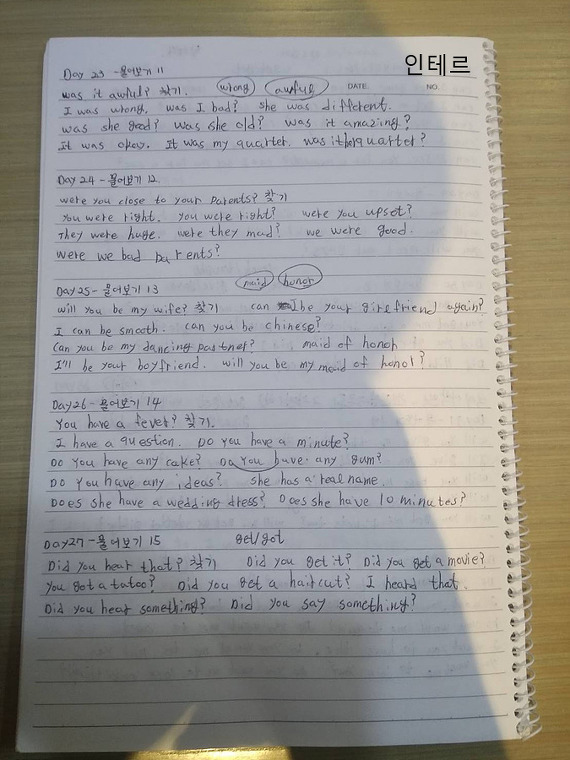 인테르
Day 23 - 물어보기 11
DATE NO.
was it awful? 찾기. wrong awful
I was wrong. was I bad? She was different.
was she good? was she old? was it amazing?
It was okay. It was my quarter. was it her quarter?
Day 24 - 물어보기 12.
were you close to your parents? 찾기
You were right. You were right? were you upset?
They were huge. were they mad? we were good.
were we bad parents?
Day 25 - 물어보기 13 maid honor
will you be my wife? 찾기 can I be your girlfriend again?
I can be smooth. can you be chinese?
Can you be my dancing partner? maid of honor
I'll be your boyfriend. will you be my maid of honor?
Day 26 - 물어보기 14
You have a fever? 찾기.
I have a question. Do you have a minute?
Do you have any cake? Do you have any gum?
Do you have any ideas? She has a real name.
Does she have a wedding dress? Does she have 10 minutes?
Day 27 - 물어보기 15 get/got
Did you hear that? 찾기 Did you get it? Did you get a movie?
You got a tatoo? Did you get a haircut? I heard that.
Did you hear something? Did you say something?